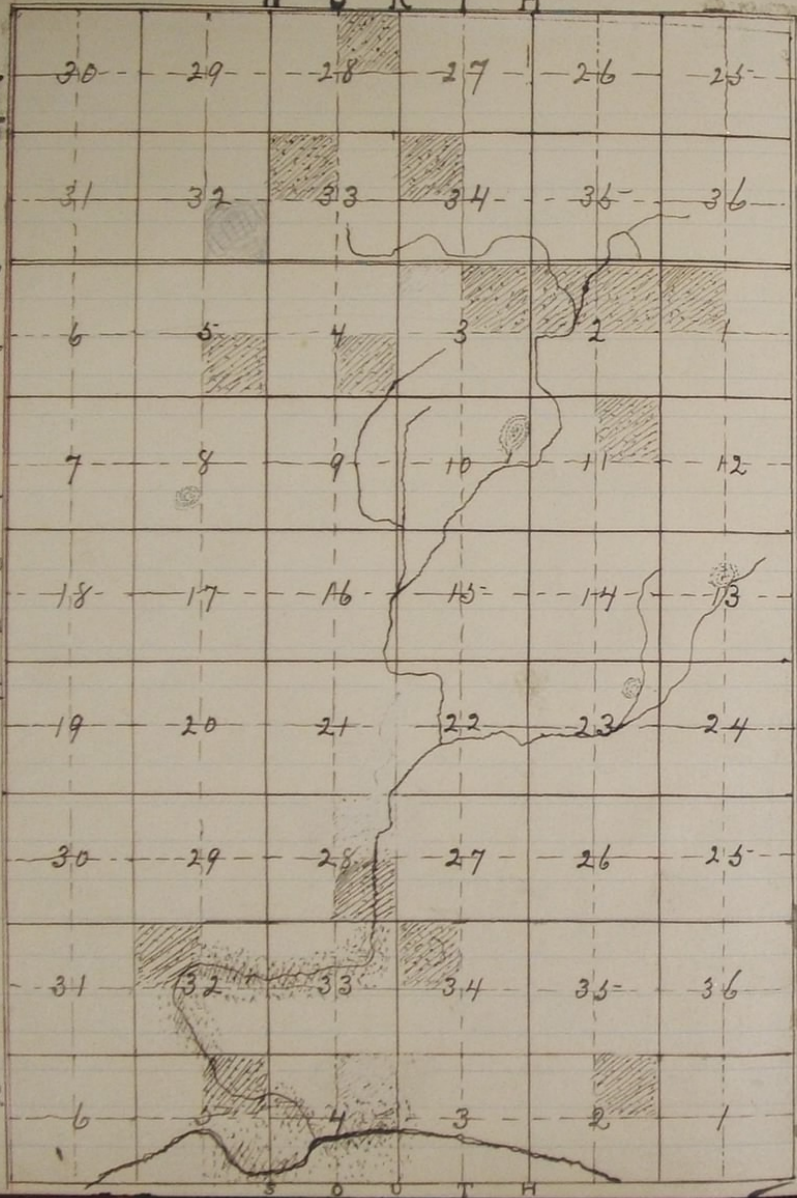 NORTH
30 29 28 27 26 25
31 32 33 34 35 36
6 5 4 3 2 1
7 8 9 10 11 12
18 17 16 15 14 13
19 20 21 22 23 24
30 29 28 27 26 25
31 32 33 34 35 36
6 5 4 3 2 1
SOUTH